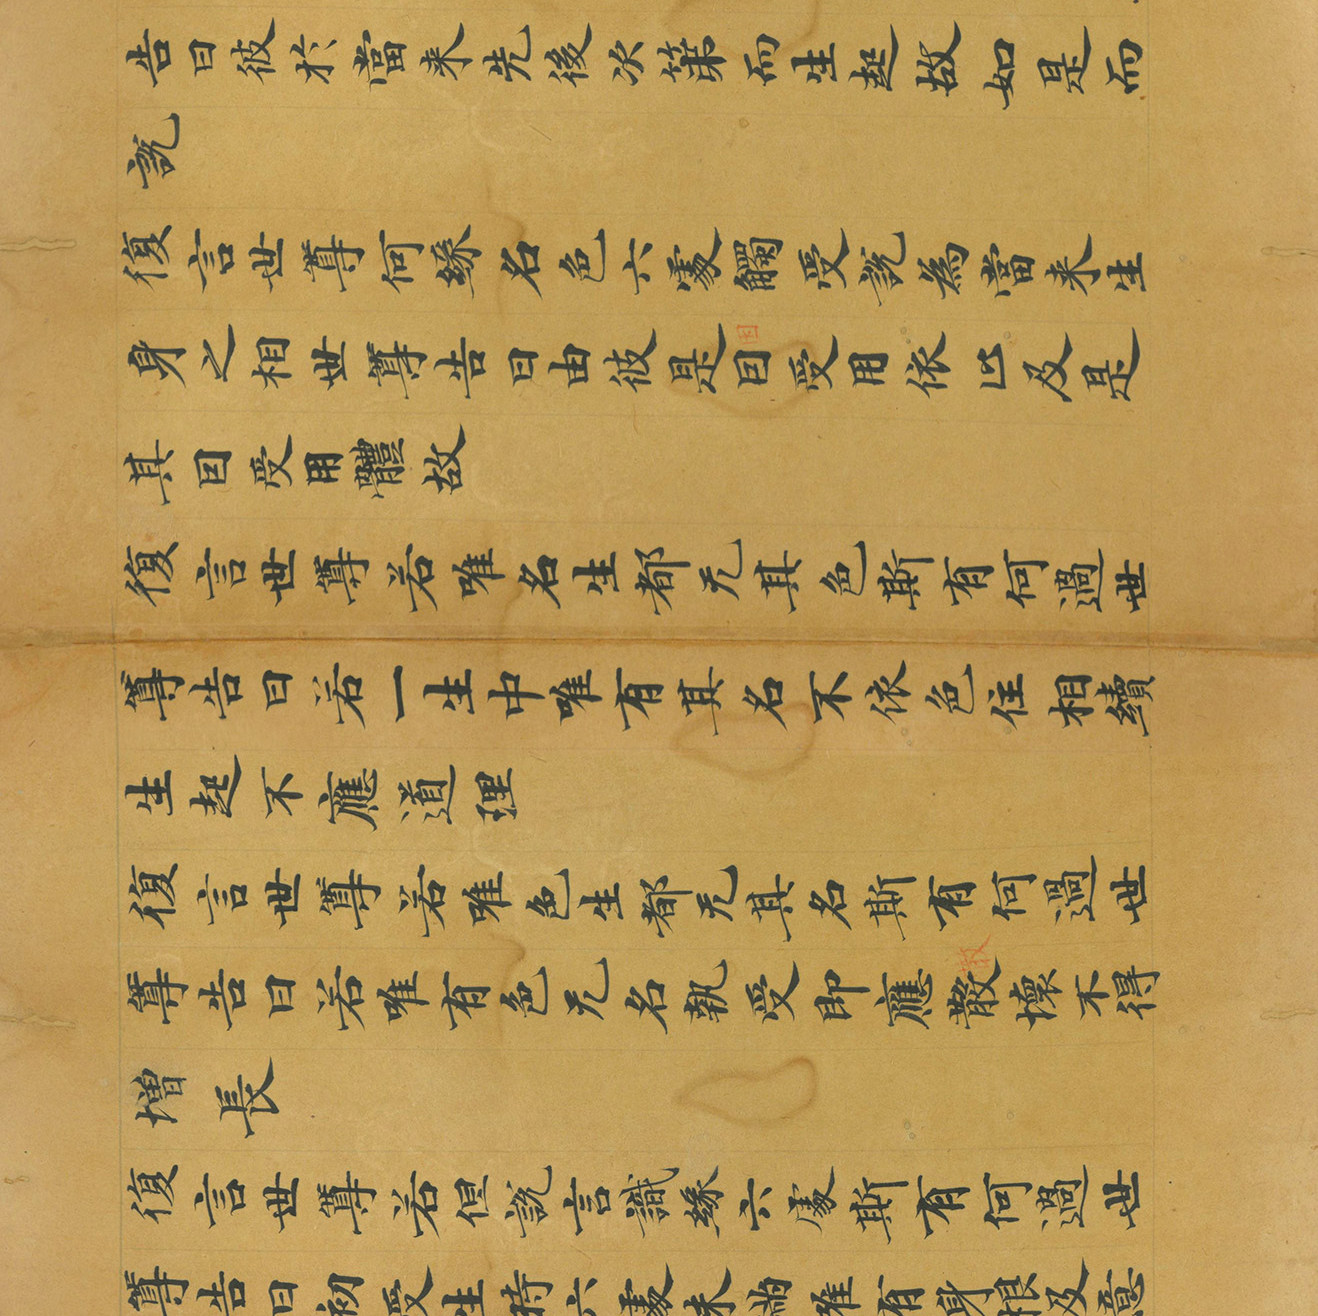 告曰彼於當来先後次第而生起故如是而
說
復言世尊何緣名色六處觸受説為當来生
身之相世尊告曰由彼是囙受用依止及是
因
其囙受用體故
復言世尊若唯名生都无其色斯有何過世
尊告曰若一生中唯有其名不依色住相續
生起不應道理
復言世尊若唯色生都无其名斯有何過世
尊告曰若唯有色无名執受即應散壞不得
散
增長
復言世尊若但說言識緣六處斯有何過世
尊告曰初受生時六處未滿唯有身根及意